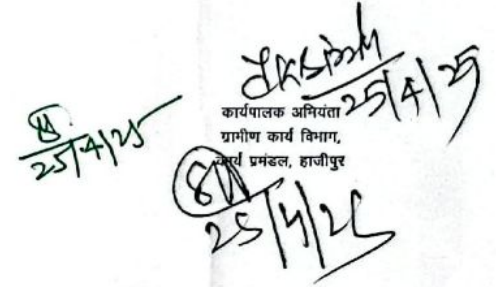 25/4/25
कार्यपालक अभियंता
ग्रामीण कार्य विभाग,
कार्य प्रमंडल, हाजीपुर
25/4/25
25/4/25